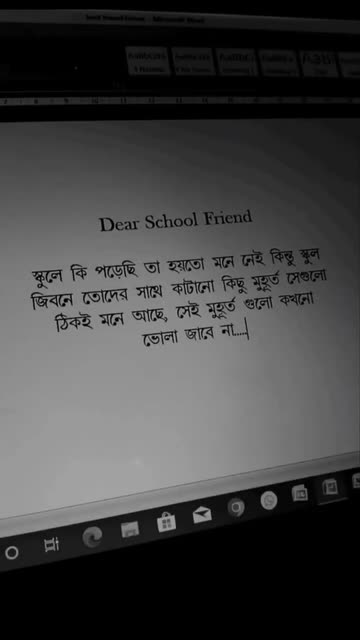 Dear School Friend
স্কুলে কি পড়েছি তা হয়তো মনে নেই কিন্তু স্কুল
জিবনে তোদের সাথে কাটানো কিছু মুহূর্ত সেগুলো
ঠিকই মনে আছে, সেই মুহূর্ত গুলো কখনো
ভোলা জাবে না....